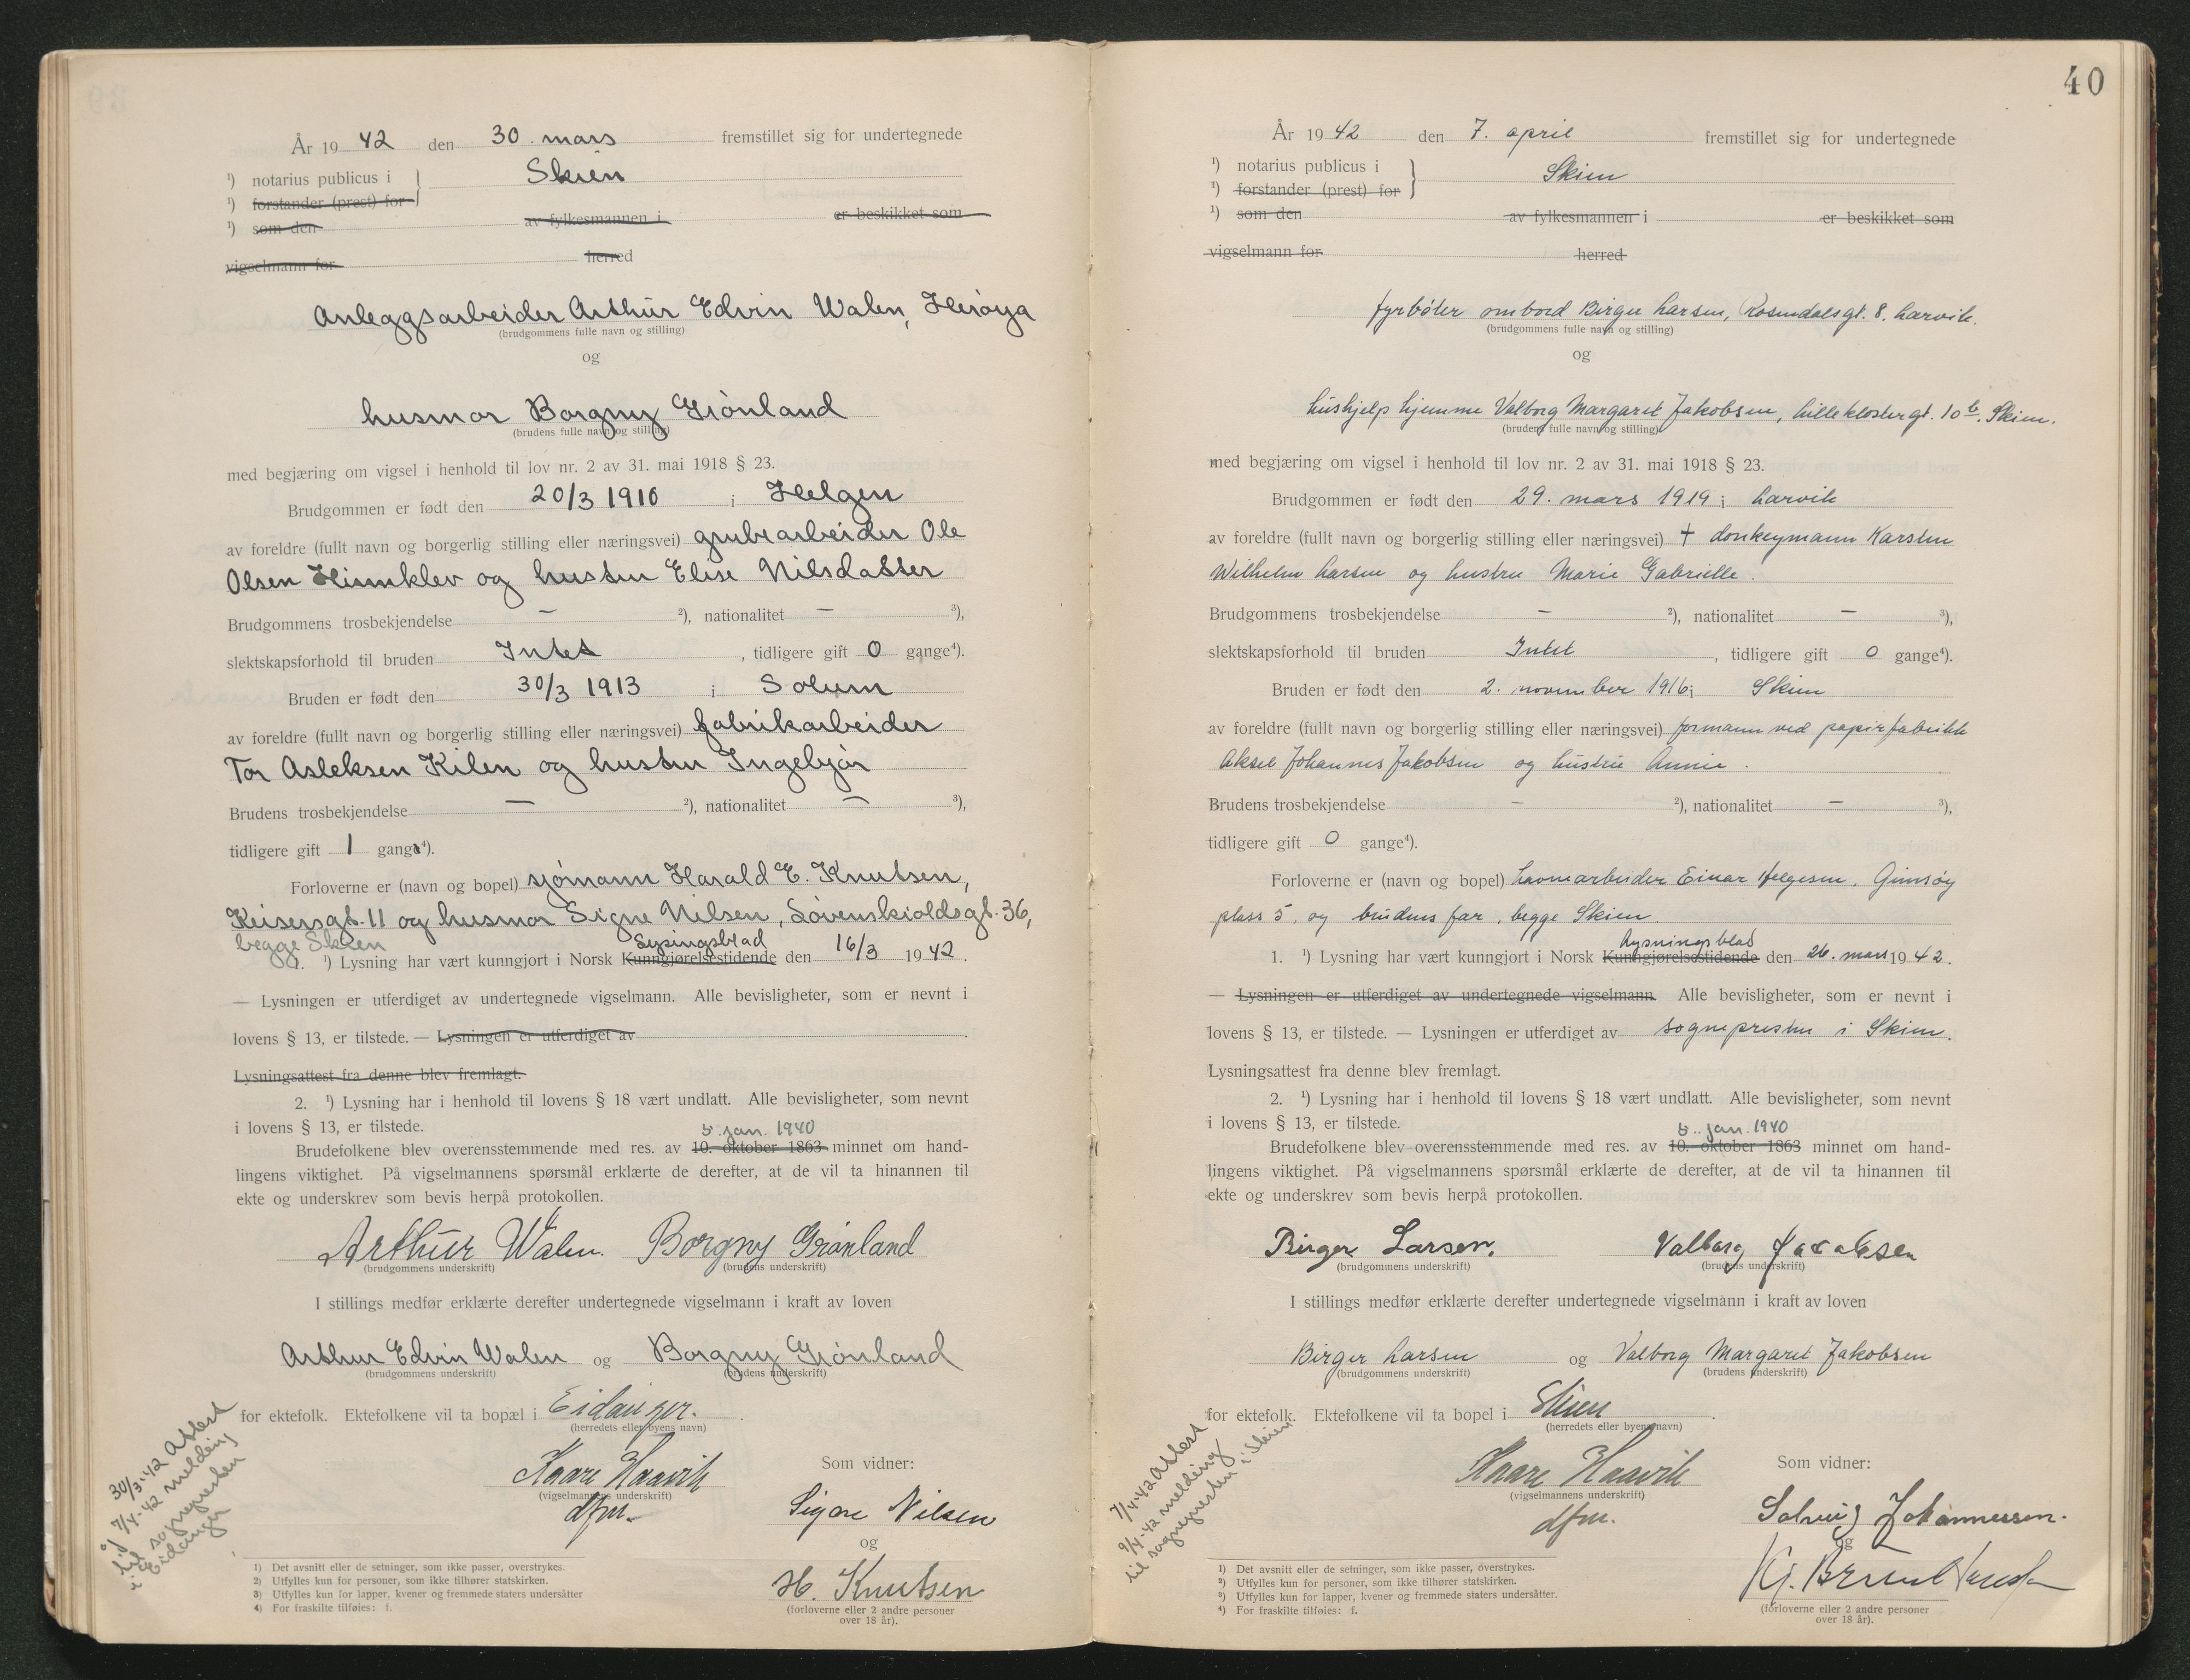 År 1942 den 30. mars fremstillet sig for undertegnede
¹) notarius publicus i Skien
¹) forstander (prest) for
¹) som den av fylkesmannen i er beskikket som
vigselmann for herred
Anleggsarbeider Arthur Edvin Walen, Herøya
(brudgommens fulle navn og stilling)
og
husmor Borgny Grönland
(brudens fulle navn og stilling)
med begjæring om vigsel i henhold til lov nr. 2 av 31. mai 1918 § 23.
Brudgommen er født den 20/3 1910 i Helgen
av foreldre (fullt navn og borgerlig stilling eller næringsvei) grubearbeider Ole
Olsen Himmklev og hustru Elise Nilsdatter
Brudgommens trosbekjendelse — ²), nationalitet — ³),
slektskapsforhold til bruden Intet, tidligere gift 0 gange⁴).
Bruden er født den 30/3 1913 i Solum
av foreldre (fullt navn og borgerlig stilling eller næringsvei) fabrikarbeider
Tor Asleksen Kilen og hustru Ingebjör
Brudens trosbekjendelse — ²), nationalitet — ³),
tidligere gift 1 gang⁴).
Forloverne er (navn og bopel) sjömann Harald E. Knutsen,
Keisersgt. 11 og husmor Signe Nilsen, Lövenskioldsgt. 36,
begge Skien
Lysingsblad
1. ¹) Lysning har vært kunngjort i Norsk Kunngjørelsestidende den 16/3 1942.
— Lysningen er utferdiget av undertegnede vigselmann. Alle bevisligheter, som er nevnt i
lovens § 13, er tilstede. — Lysningen er utferdiget av .
Lysningsattest fra denne blev fremlagt.
2. ¹) Lysning har i henhold til lovens § 18 vært undlatt. Alle bevisligheter, som nevnt
i lovens § 13, er tilstede.
5. jan. 1940
Brudefolkene blev overensstemmende med res. av 10. oktober 1863 minnet om hand-
lingens viktighet. På vigselmannens spørsmål erklærte de derefter, at de vil ta hinannen til
ekte og underskrev som bevis herpå protokollen.
Arthur Walen. Borgny Grönland
(brudgommens underskrift) (brudens underskrift)
I stillings medfør erklærte derefter undertegnede vigselmann i kraft av loven
Arthur Edvin Walen og Borgny Grönland
(brudgommens underskrift) (brudens underskrift)
for ektefolk. Ektefolkene vil ta bopæl i Eidanger.
(herredets eller byens navn)
Kaare Haavik
(vigselmannens underskrift)
dfm.
Som vidner:
Signe Nilsen
og
H. Knutsen
(forloverne eller 2 andre personer
over 18 år).
30/3-42 Attest
og 7/4-42 melding
til sognepresten
i Eidanger
1) Det avsnitt eller de setninger, som ikke passer, overstrykes.
2) Utfylles kun for personer, som ikke tilhører statskirken.
3) Utfylles kun for lapper, kvener og fremmede staters undersåtter
4) For fraskilte tilføies: f.
40
År 1942 den 7. april fremstillet sig for undertegnede
¹) notarius publicus i Skien
¹) forstander (prest) for
¹) som den av fylkesmannen i er beskikket som
vigselmann for herred
fyrbøter ombord Birger Larsen, Rosendalsgt. 8, Larvik.
(brudgommens fulle navn og stilling)
og
hushjelp hjemme Valborg Margaret Jakobsen, Lilleklostergt. 10b, Skien.
(brudens fulle navn og stilling)
med begjæring om vigsel i henhold til lov nr. 2 av 31. mai 1918 § 23.
Brudgommen er født den 29. mars 1919 i Larvik
av foreldre (fullt navn og borgerlig stilling eller næringsvei) † donkeymann Karsten
Wilhelm Larsen og hustru Marie Gabrielle.
Brudgommens trosbekjendelse — ²), nationalitet — ³),
slektskapsforhold til bruden Intet, tidligere gift 0 gange⁴).
Bruden er født den 2. november 1916 i Skien
av foreldre (fullt navn og borgerlig stilling eller næringsvei) formann ved papirfabrikk
Aksel Johannes Jakobsen og hustru Annie.
Brudens trosbekjendelse — ²), nationalitet — ³),
tidligere gift 0 gange⁴).
Forloverne er (navn og bopel) havnearbeider Einar Helgesen, Gimsøy
plass 5, og brudens far, begge Skien.
Lysningsblad
1. ¹) Lysning har vært kunngjort i Norsk Kunngjørelsestidende den 26. mars 1942.
— Lysningen er utferdiget av undertegnede vigselmann. Alle bevisligheter, som er nevnt i
lovens § 13, er tilstede. — Lysningen er utferdiget av sognepresten i Skien.
Lysningsattest fra denne blev fremlagt.
2. ¹) Lysning har i henhold til lovens § 18 vært undlatt. Alle bevisligheter, som nevnt
i lovens § 13, er tilstede.
5. jan. 1940
Brudefolkene blev overensstemmende med res. av 10. oktober 1863 minnet om hand-
lingens viktighet. På vigselmannens spørsmål erklærte de derefter, at de vil ta hinannen til
ekte og underskrev som bevis herpå protokollen.
Birger Larsen. Valborg Jakobsen
(brudgommens underskrift) (brudens underskrift)
I stillings medfør erklærte derefter undertegnede vigselmann i kraft av loven
Birger Larsen og Valborg Margaret Jakobsen
(brudgommens underskrift) (brudens underskrift)
for ektefolk. Ektefolkene vil ta bopel i Skien.
(herredets eller byens navn)
Kaare Haavik
(vigselmannens underskrift)
dfm.
Som vidner:
Solveig Johannessen.
og
(forloverne eller 2 andre personer
over 18 år).
7/4-42 Attest
9/4-42 melding
til sognepresten i Skien
¹) Det avsnitt eller de setninger, som ikke passer, overstrykes.
²) Utfylles kun for personer, som ikke tilhører statskirken.
³) Utfylles kun for lapper, kvener og fremmede staters undersåtter.
⁴) For fraskilte tilføies: f.